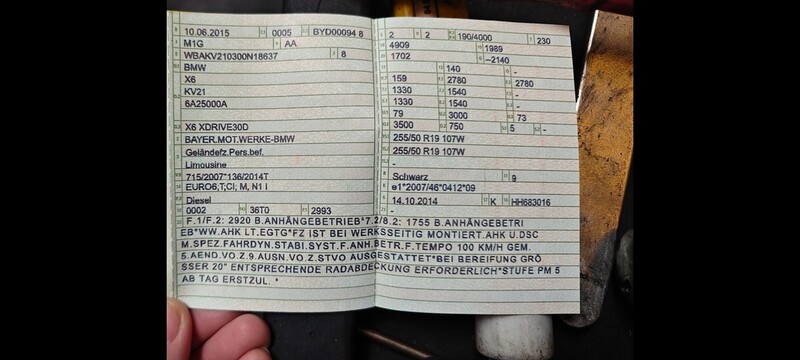 10.06.2015 0005 BYD00094 8
M1G AA
WBAKV210300N18637 8
BMW
X6
KV21
6A25000A
X6 XDRIVE30D
BAYER.MOT.WERKE-BMW
Geländefz.Pers.bef.
Limousine
715/2007*136/2014T
EURO6;T;CI; M, N1 I
Diesel
0002 36T0 2993
2 2 190/4000 230
4909 1989
1702 –2140
140 -
159 2780 2780
1330 1540 -
1330 1540 -
79 3000 73
3500 750 5 -
255/50 R19 107W
255/50 R19 107W
-
Schwarz 9
e1*2007/46*0412*09
14.10.2014 K HH683016
-
F.1/F.2: 2920 B.ANHÄNGEBETRIEB*7.2/8.2: 1755 B.ANHÄNGEBETRI
EB*WW.AHK LT.EGTG*FZ IST BEI WERKSSEITIG MONTIERT.AHK U.DSC
M.SPEZ.FAHRDYN.STABI.SYST.F.ANH.BETR.F.TEMPO 100 KM/H GEM.
5.AEND.VO.Z.9.AUSN.VO.Z.STVO AUSGESTATTET*BEI BEREIFUNG GRÖ
SSER 20" ENTSPRECHENDE RADABDECKUNG ERFORDERLICH*STUFE PM 5
AB TAG ERSTZUL. *